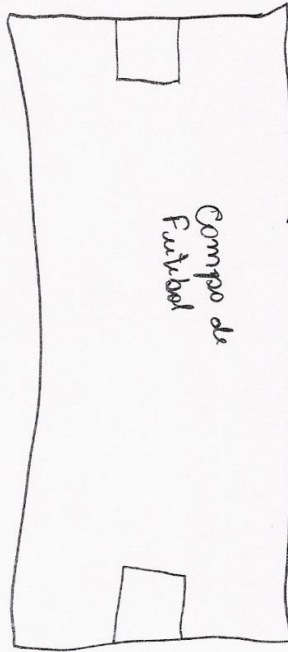 Campo de
Futebol